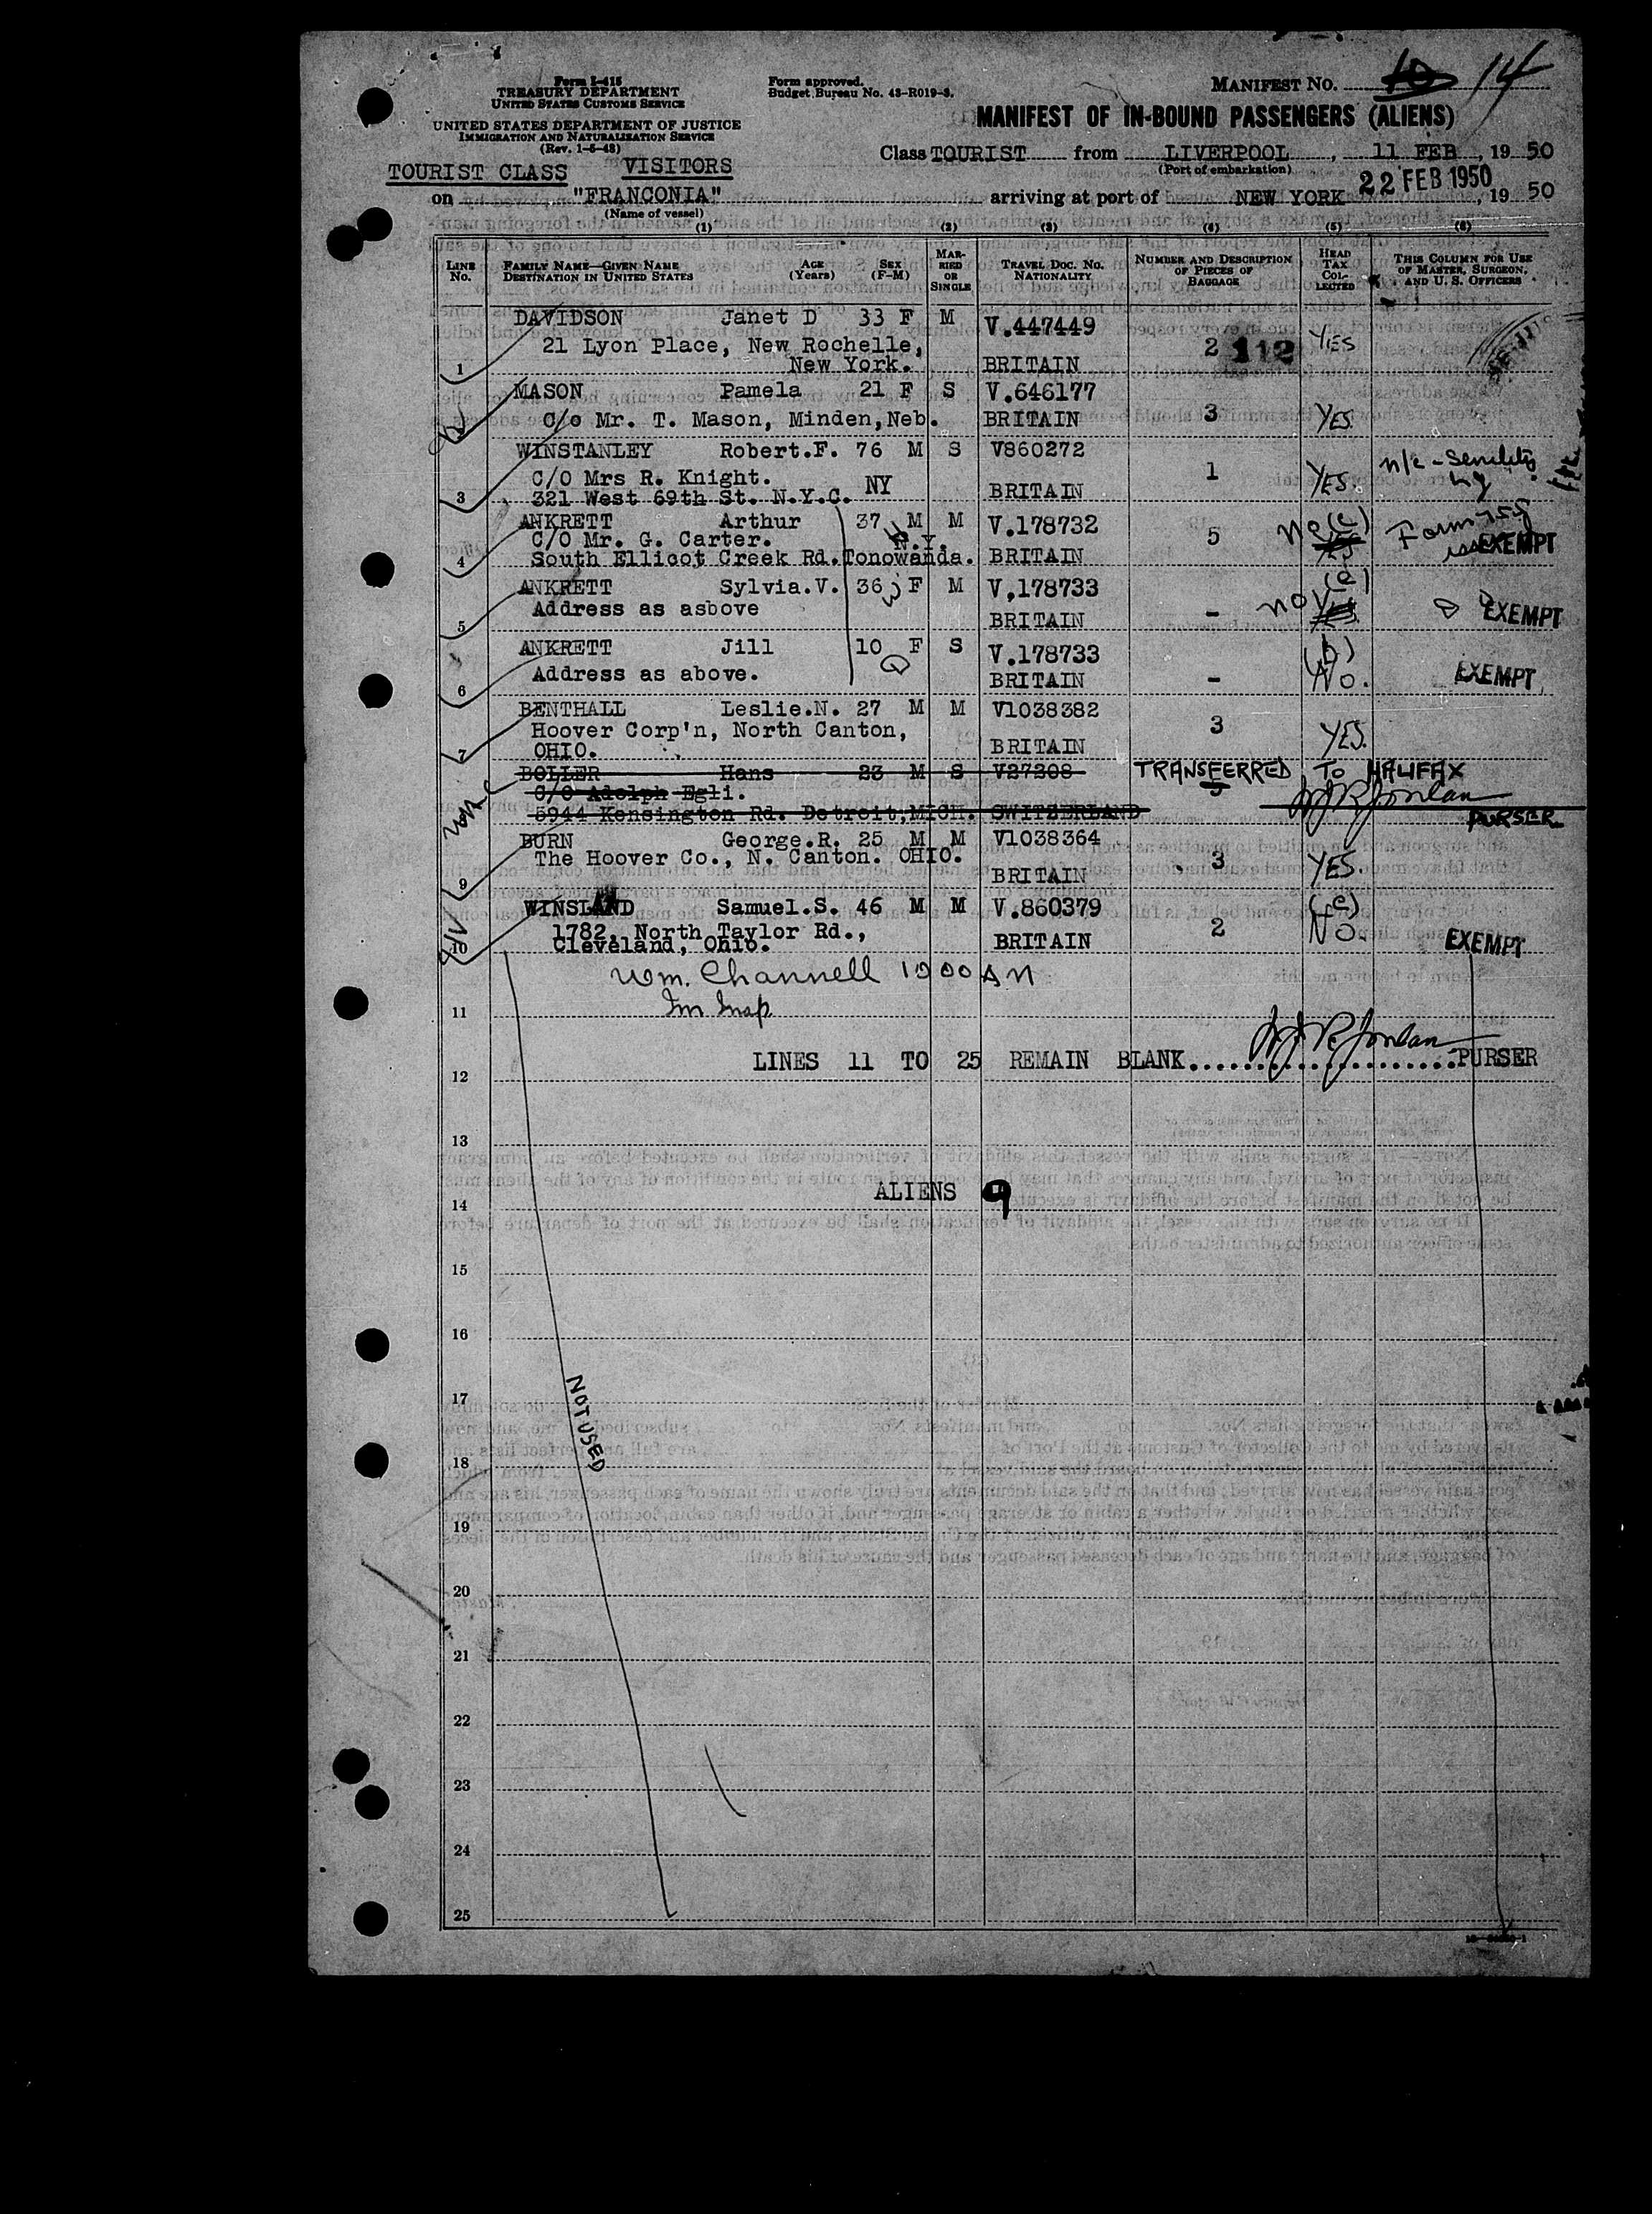 Form I-415
TREASURY DEPARTMENT
UNITED STATES CUSTOMS SERVICE
UNITED STATES DEPARTMENT OF JUSTICE
IMMIGRATION AND NATURALIZATION SERVICE
(Rev. 1-5-48)
Form approved.
Budget Bureau No. 43-R019-3.
MANIFEST No. 10 14
MANIFEST OF IN-BOUND PASSENGERS (ALIENS)
TOURIST CLASS VISITORS
Class TOURIST from LIVERPOOL, 11 FEB, 19 50
(Port of embarkation)
on "FRANCONIA" arriving at port of NEW YORK 22 FEB 1950, 19 50
(Name of vessel)
(1) (2) (3) (4) (5) (6)
LINE No. FAMILY NAME—GIVEN NAME DESTINATION IN UNITED STATES AGE (Years) SEX (F-M) MARRIED OR SINGLE TRAVEL DOC. No. NATIONALITY NUMBER AND DESCRIPTION OF PIECES OF BAGGAGE HEAD TAX COLLECTED THIS COLUMN FOR USE OF MASTER, SURGEON, AND U. S. OFFICERS
DAVIDSON Janet D 33 F M V.447449
21 Lyon Place, New Rochelle, 2 112 YES
1 New York. BRITAIN
MASON Pamela 21 F S V.646177
C/o Mr. T. Mason, Minden,Neb. BRITAIN 3 YES.
WINSTANLEY Robert.F. 76 M S V860272
C/O Mrs R. Knight. NY 1 YES. n/c - Senility
3 321 West 69th St. N.Y.C. BRITAIN
ANKRETT Arthur 37 M M V.178732 No (e)
C/O Mr. G. Carter. N.Y. 5 Form EXEMPT
4 South Ellicot Creek Rd.Tonowanda. BRITAIN
ANKRETT Sylvia.V. 36 F M V,178733 (e)
Address as asbove - no Yes EXEMPT
5 BRITAIN
ANKRETT Jill 10 F S V.178733 (b)
Address as above. BRITAIN - No. EXEMPT
6
BENTHALL Leslie.N. 27 M M V1038382
Hoover Corp'n, North Canton, 3 YES.
7 OHIO. BRITAIN
BOLLER Hans 23 M S V27208 TRANSFERRED TO HALIFAX
C/O Adolph Egli. 5 Jordan
5944 Kensington Rd. Detroit,MICH. SWITZERLAND PURSER
BURN George.R. 25 M M V1038364
The Hoover Co., N. Canton. OHIO. 3 YES.
9 BRITAIN
WINSLAND Samuel.S. 46 M M V.860379 (e)
1782, North Taylor Rd., 2 No.
Cleveland, Ohio. BRITAIN EXEMPT
Wm. Channell 1000 AM
11 Im Insp
LINES 11 TO 25 REMAIN BLANK.................... Jordan PURSER
12
13
ALIENS 9
14
15
16
17
NOT USED
18
19
20
21
22
23
24
25